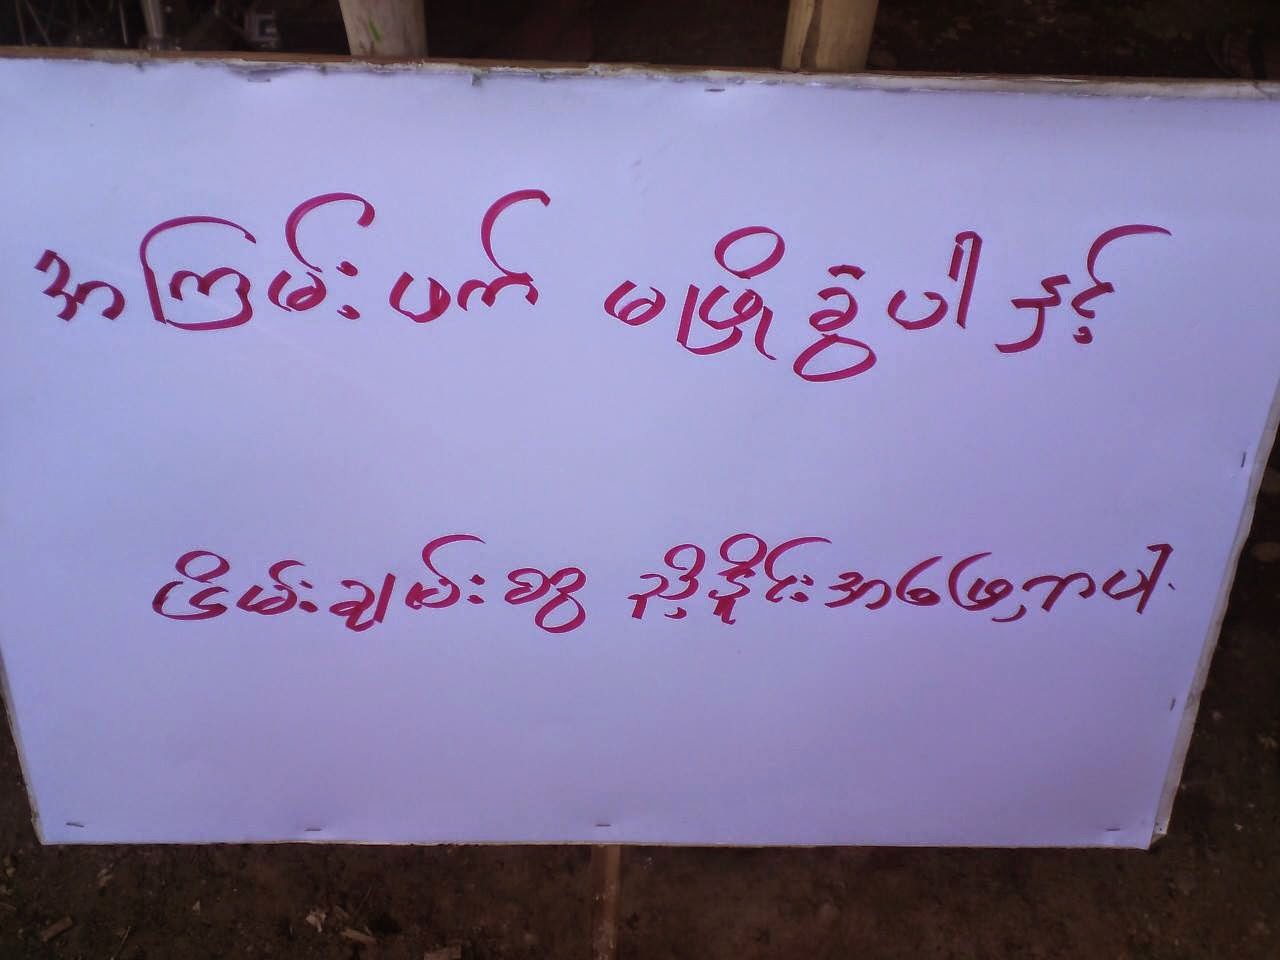 အကြမ်းဖက် မဖြိုခွဲပါနှင့်
ငြိမ်းချမ်းစွာ ညှိနှိုင်းအဖြေရှာပါ.